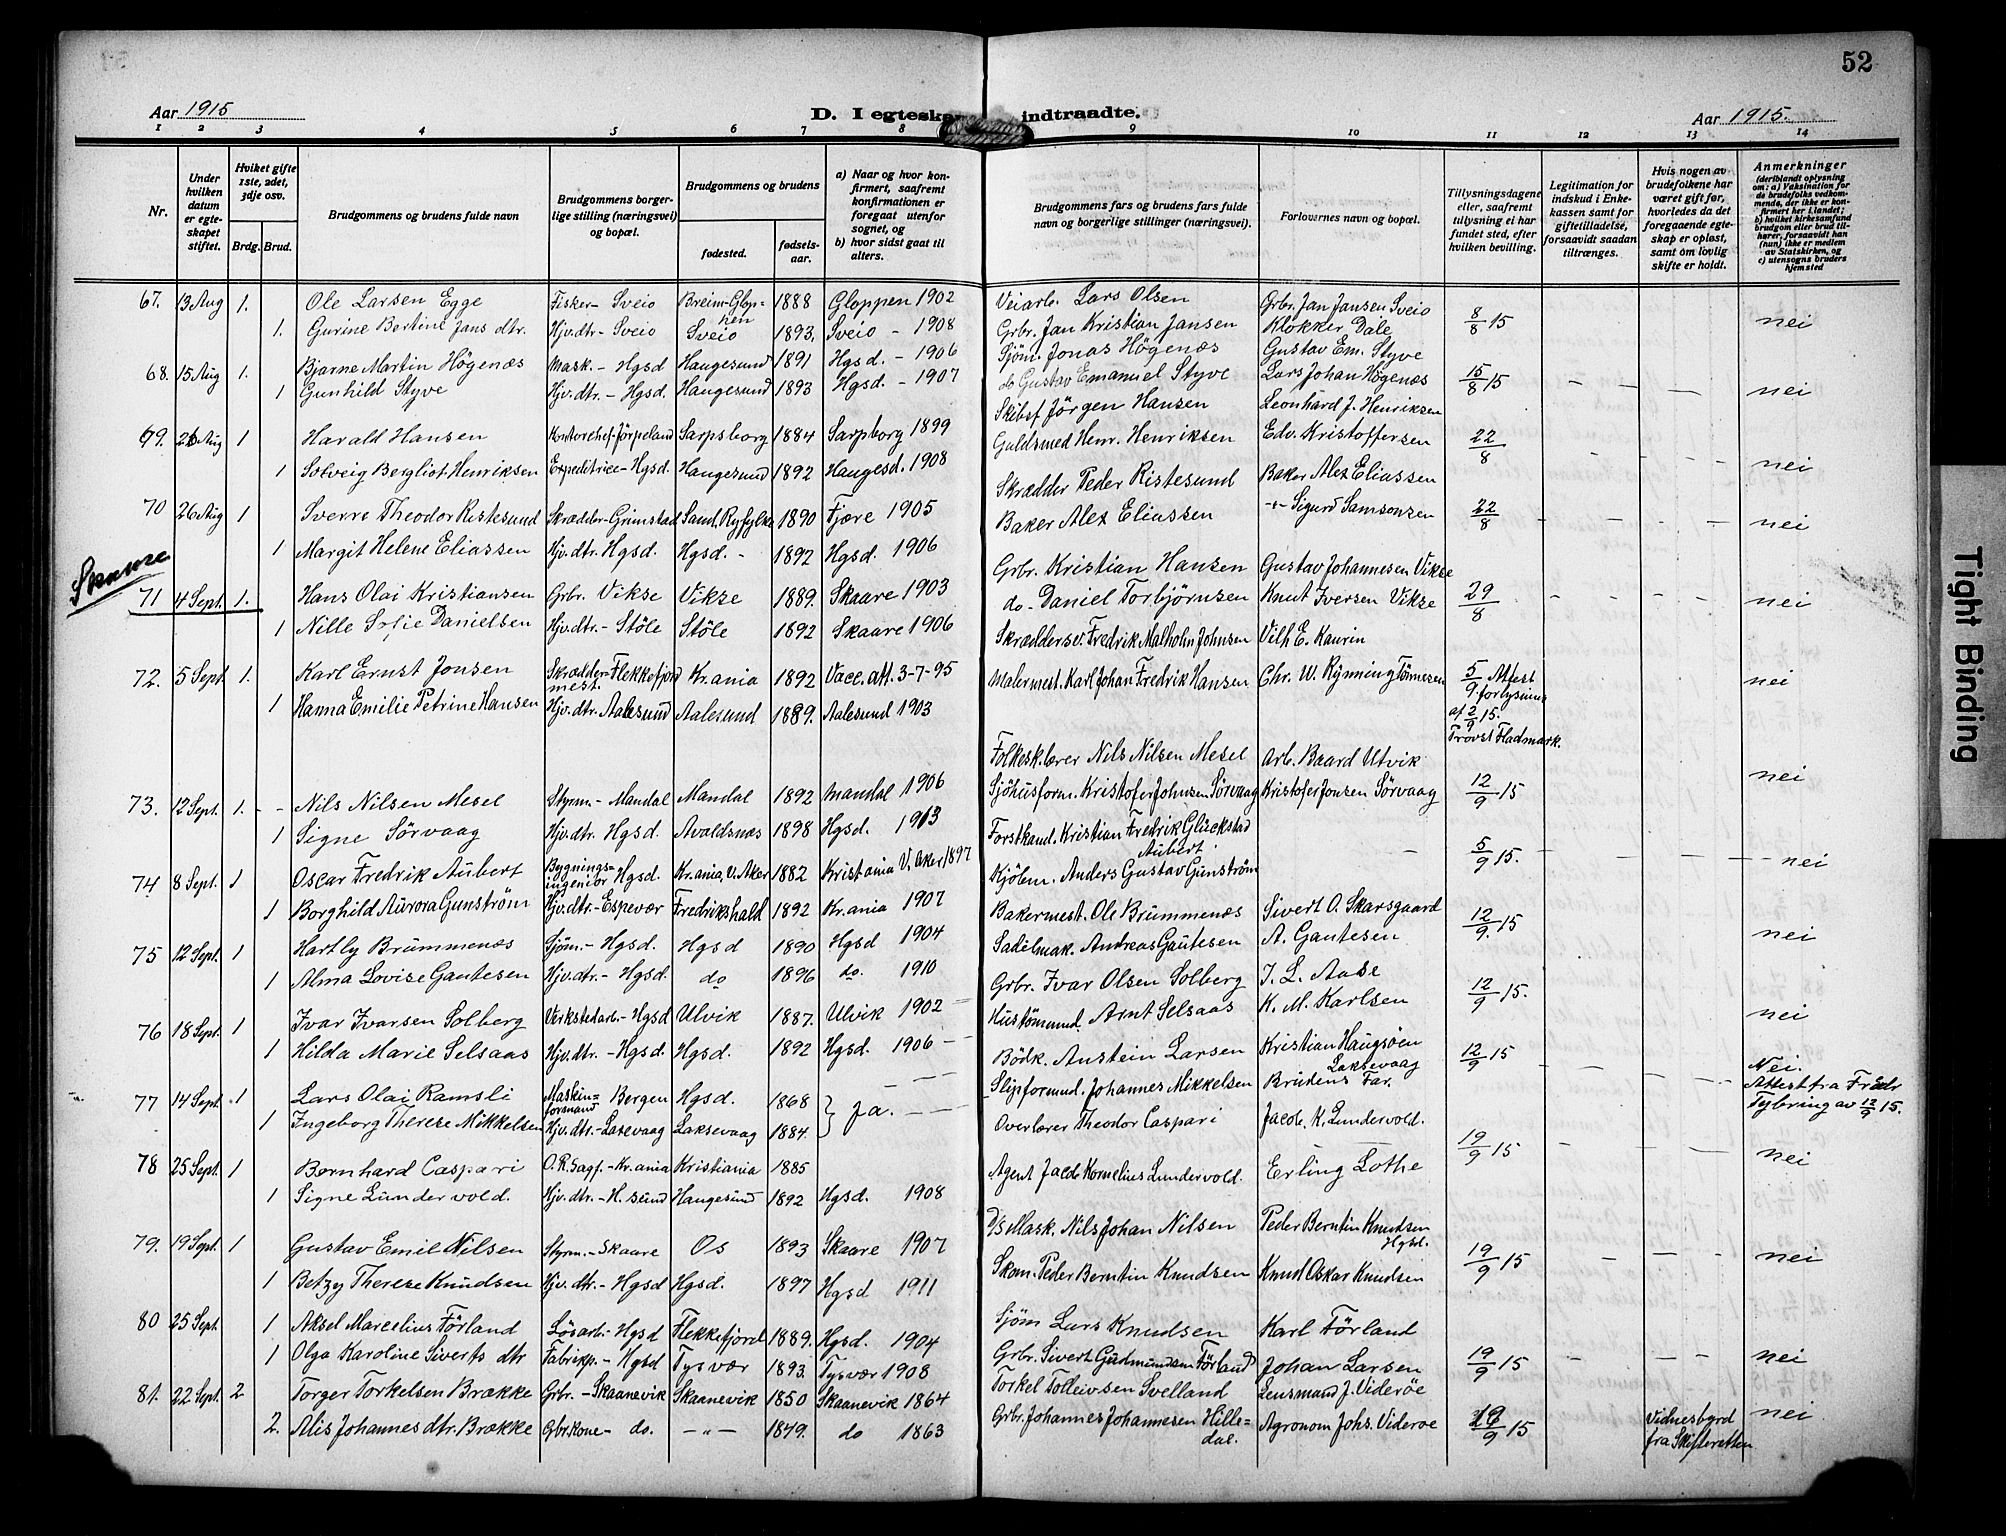 52
Aar 1915
D. I egteska
indtraadte.
Aar 1915.
1 2 3 4 5 6 7 8 9 10 11 12 13 14
Nr.
Under hvilken datum er egteskapet stiftet.
Hvilket gifte 1ste, 2det, 3dje osv.
Brdg. Brud.
Brudgommens og brudens fulde navn
Brudgommens borgerlige stilling (næringsvei) og bopæl.
Brudgommens og brudens
fødested.
fødselsaar.
a) Naar og hvor konfirmert, saafremt konfirmationen er foregaat utenfor sognet, og
b) hvor sidst gaat til alters.
Brudgommens fars og brudens fars fulde navn og borgerlige stillinger (næringsvei).
Forlovernes navn og bopæl.
Tillysningsdagene eller, saafremt tillysning ei har fundet sted, efter hvilken bevilling.
Legitimation for indskud i Enkekassen samt for giftetilladelse, forsaavidt saadan tiltrænges.
Hvis nogen av brudefolkene har været gift før, hvorledes da det foregaaende egteskap er opløst, samt om lovlig skifte er holdt.
Anmerkninger
(deriblandt oplysning om: a) Vaksination for de brudefolks vedkommende, der ikke er konfirmert her i landet; b) hvilket kirkesamfund brudgom eller brud tilhører, forsaavidt han (hun) ikke er medlem av Statskirken, og c) utensogns bruders hjemsted
67. 13 Aug 1. Ole Larsen Egge Fisker - Sveio Breim-Gloppen 1888 Gloppen 1902 Veiarb. Lars Olsen Grbr. Jan Jansen Sveio 8/8 15 nei
1. Gurine Bertine Jans dtr. Hjv.dtr - Sveio Sveio 1893. Sveio - 1908 Grbr. Jan Kristian Jansen Klokker Dale
68. 15 Aug 1. Bjarne Martin Högenæs Mask. - Hgsd Haugesund 1891 Hgsd. - 1906 Sjöm. Jonas Högenæs Gustav Em. Styve 15/8 15 - - - nei
1 Gunhild Styve Hjv.dtr. - Hgsd. Haugesund 1893 Hgsd. - 1907 do Gustav Emanuel Styve Lars Johan Högenæs
69. 26 Aug 1 Harald Hansen Kontorchef-Jörpeland Sarpsborg 1884 Sarpborg 1899 Skibsf Jörgen Hansen Leonhard J. Henriksen 22/8 - - - nei
1 Solveig Bergliot Henriksen Expeditrice - Hgsd. Haugesund 1892 Haugesd. 1908 Guldsmed Henr. Henriksen Edv. Kristoffersen
70 26 Aug 1 Sverre Theodor Ristesund Skrædder-Grimstad Sand, Ryfylke 1890 Fjære 1905 Skrædder Peder Ristesund Baker Alex Eliassen 22/8 - - - nei
1 Margit Helene Eliassen Hjv.dtr. Hgsd. Hgsd. - 1892 Hgsd. 1906 Baker Alex Eliassen -"- Sigurd Samsonsen
Skaare
71 4 Sept. 1. Hans Olai Kristiansen Grbr. Vikse Vikse 1889. Skaare 1903 Grbr. Kristian Hansen Gustav Johannesen Vikse 29/8 - - - nei
1 Nille Sofie Danielsen Hjv.dtr. - Stöle Stöle 1892 Skaare 1906 do - Daniel Torbjörnsen Knut Iversen Vikse
72. 5 Sept 1. Karl Ernst Jonsen Skræddermest. - Flekkefjord Kr.ania 1892 Vacc. att. 3-7-95 Skræddersv. Fredrik Malholm Johnsen Vilh E. Kaurin 5/9 Attest forlysning af 2/9 15. Provst Fladmark. nei
1 Hanna Emilie Petrine Hansen Hjv.dtr. Aalesund Aalesund 1889. Aalesund 1903 Malermest. Karl Johan Fredrik Hansen Chr. W. Rynning Tönnesen
73. 12 Sept. 1. - - Nils Nilsen Mesel Styrm. - Mandal Mandal 1892 Mandal 1906 Folkesk.lærer Nils Nilsen Mesel Arb. Baard Utvik 12/9 15 nei
1 Signe Sörvaag Hjv.dtr. Hgsd. Avaldsnæs 1898 Hgsd. 1913 Sjöhusform. Kristofer Johnsen Sörvaag Kristofer Jonsen Sörvaag
74 8 Sept. 1 Oscar Fredrik Aubert Bygningsingeniör Hgsd. Kr.ania, V. Aker 1882 Kristiania V. Aker 1897 Forstkand. Kristian Fredrik Glückstad Aubert - 5/9 15. - - nei
1 Borghild Aurora Gunström Hjv.dtr. - Espevær Fredrikshald 1892 Kr.ania 1907 Kjöbm. Anders Gustav Gunström
75 12 Sept. 1 Hartly Brummenæs Sjöm. - Hgsd. Hgsd 1890 Hgsd 1904 Bakermest. Ole Brummenæs Sivert O. Skarsgaard 12/9 15 nei
1 Alma Lovise Gautesen Hjv.dtr. - Hgsd. do 1896 do. 1910 Sadelmak. Andreas Gautesen A. Gautesen
76 18 Sept. 1 Ivar Ivarsen Solberg Verkstedarb. - Hgsd Ulvik 1887. Ulvik 1902 Grbr. Ivar Olsen Solberg J. L. Aase 12/9 15. nei
1 Hilda Marie Selsaas Hjv.dtr. - Hgsd. Hgsd. 1892 Hgsd. 1906 - Hustömmd. Arnt Selsaas K. M. Karlsen
77 14 Sept. 1 Lars Olai Ramsli Maskinformand Bergen Hgsd. 1868 } ja. - - Bödk. Anstein Larsen Kristian Haugsöen Laksevaag 12/9 15 - - - Nei. Attest fra Fredr Tybring av 12/9 15.
1 Ingeborg Therese Mikkelsen Hjv.dtr. - Laxevaag Laksevaag 1884. Slipformd. Johannes Mikkelsen Brudens Far.
78 25 Sept. 1 Bernhard Caspari O.R.Sagf. - Kr.ania Kristiania 1885 Overlærer Theodor Caspari Jacob. K. Lundervold. 19/9 15 - - - nei
1 Signe Lundervold. Hjv.dtr. - H.sund Haugesund 1892 Hgsd. 1908 Agent Jacob Kornelius Lundervold. Erling Lothe
79. 19 Sept. 1 Gustav Emil Nilsen Styrm. - Skaare Os 1893 Skaare 1907 D/s Mask. Nils Johan Nilsen Peder Berntin Knutsen Hgsd. 19/9 15 - - - nei
1 Betzy Therese Knudsen Hjv.dtr. - Hgsd Hgsd. 1897 Hgsd 1911 Skom. Peder Berntin Knudsen Knud Oskar Knudsen
80 25 Sept. 1 Aksel Marcelius Förland Lösarb. - Hgsd Flekkefjord 1889. Hgsd. 1904 Sjöm Lars Knudsen Karl Förland 19/9 15 - - - nei
1 Olga Karoline Siverts dtr Fabrikp. - Hgsd Tysvær 1893. Tysvær 1908 Grbr. Sivert Gudmundsen Förland Johan Larsen
81. 22 Sept. 2 Torger Torkelsen Brække Grbr. - Skaanevik Skaanevik 1850 Skaanevik 1864 Torkel Tolleivsen Svelland Lensmand J. Videröe 19/9 15 Vidnesbyrd fra Skifteretten nei
2. Alis Johannes dtr. Brække Gbr.kone - do. -"- 1849. do 1863 Grbr. Johannes Johannesen Hilledal. Agronom Johs. Videröe
Tight Binding